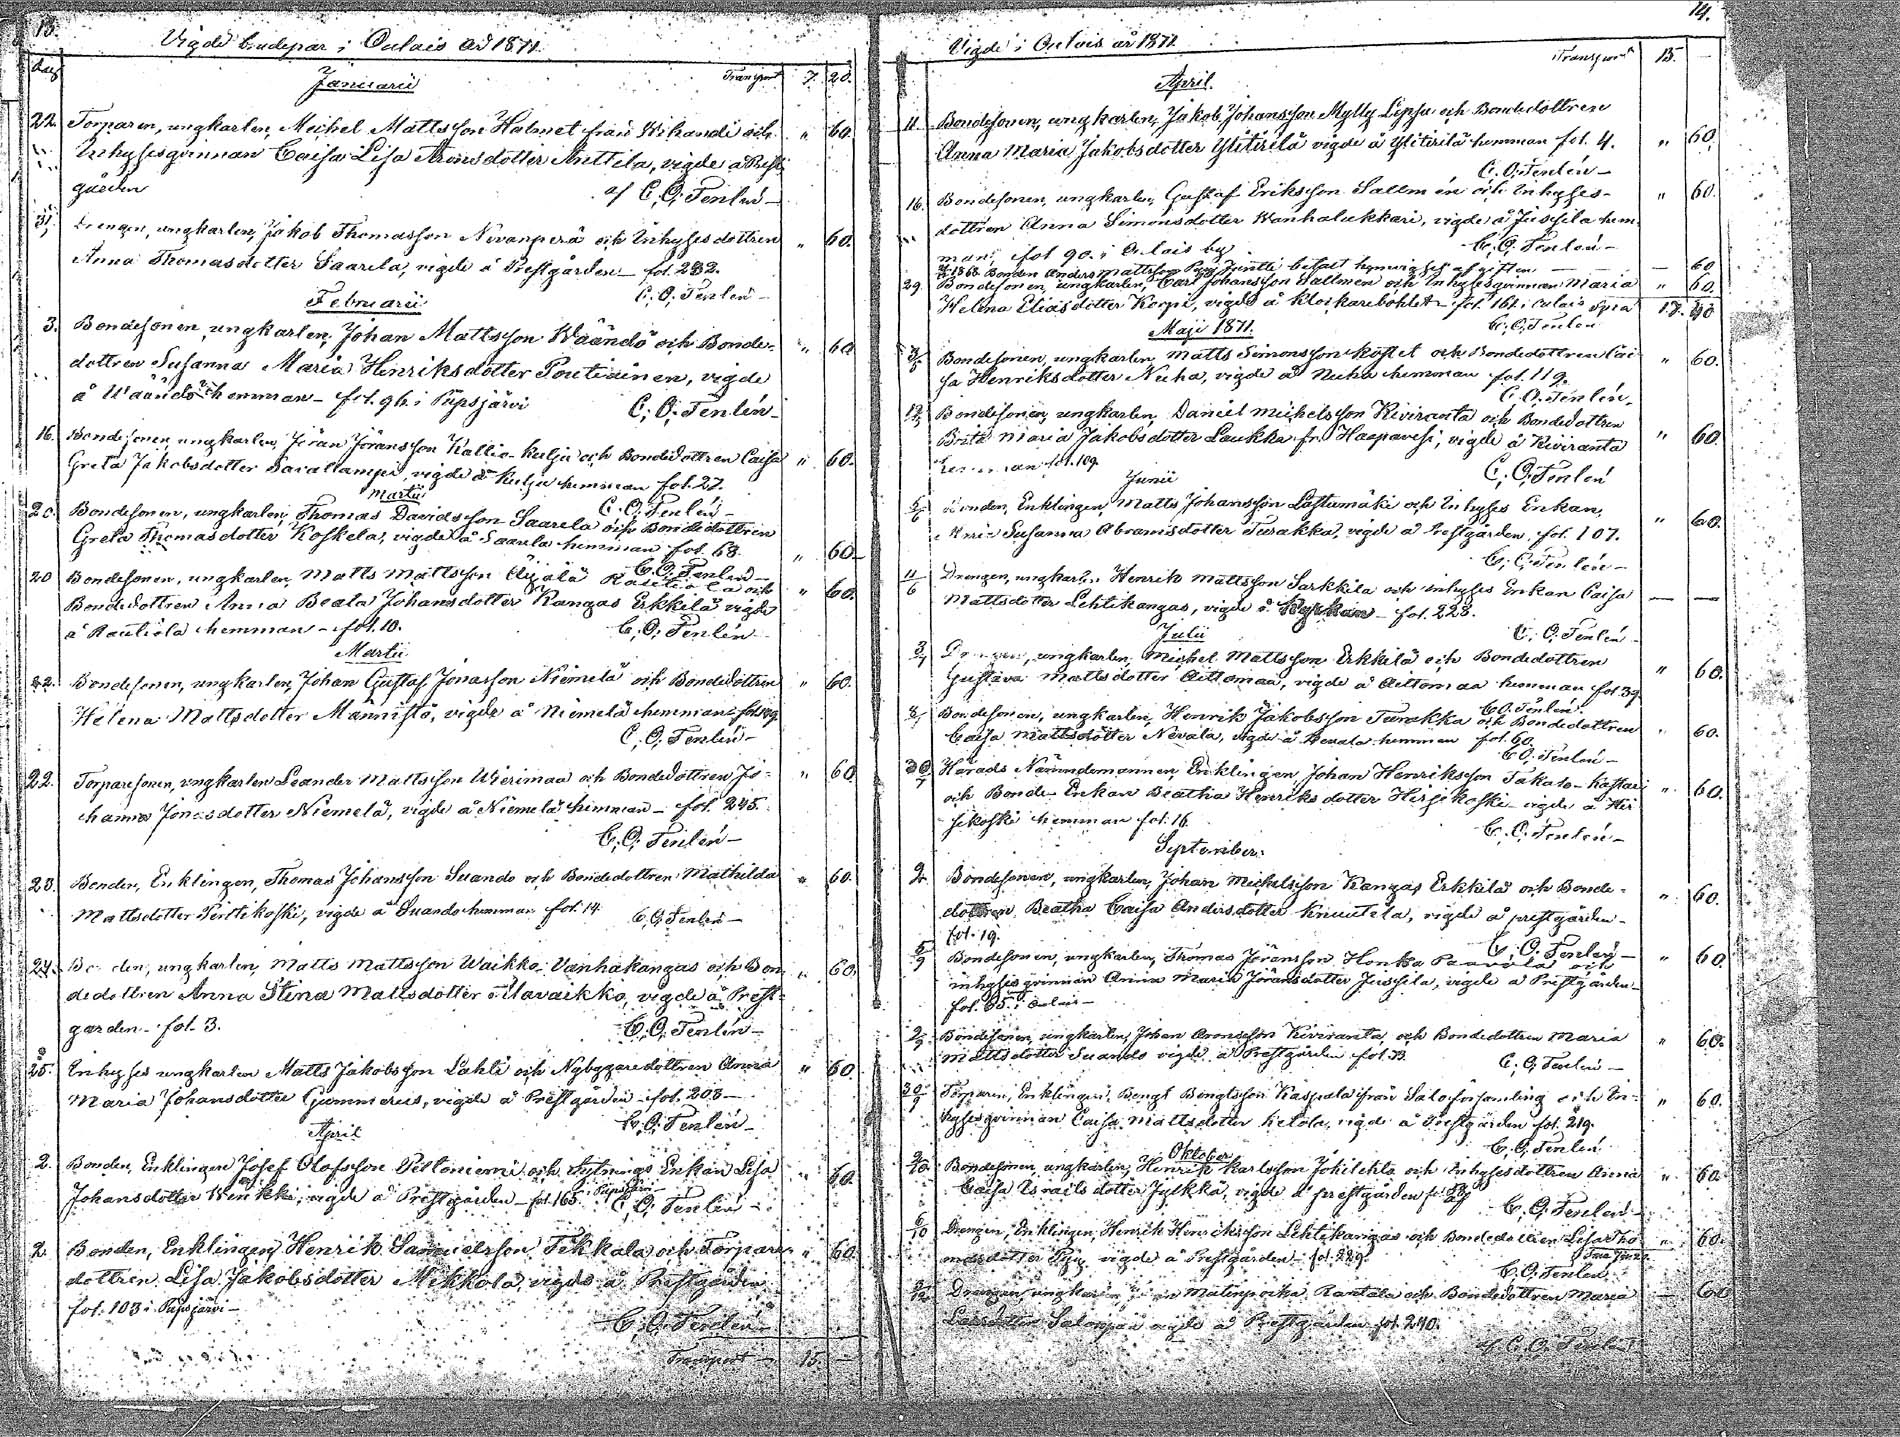 13.
Vigde brudepar i Oulais år 1871.
dag
Januarii
Transport 7. 20.
22. Torparen, ungkarlen, Michel Mattsson Halmet från Wihandi och " 60.
Inhysesqvinnan Caisa Lisa Aronsdotter Anttila, vigde å Prest
gården af C. O. Fenlén
31. Drengen, ungkarlen, Jakob Thomasson Nivanperä och Inhysesdottren " 60.
Anna Thomasdotter Saarela, vigde å Prestgården fol. 232.
C. O. Fenlén
Februarii
3. Bondesonen, ungkarlen, Johan Mattsson Wäändö och Bonde- " 60
dottren Susanna Maria Henriksdotter Poutiainen, vigde
å Wäändö hemman - fol. 96 i Piipsjärvi C. O. Fenlén
16. Bondesonen, ungkarlen, Jöran Jöransson Kallio-kulju och Bondedottren Caisa " 60.
Greta Jakobsdotter Savallampi, vigde å Kulju hemman fol. 27.
C. O. Fenlén
Martii
20. Bondesonen, ungkarlen, Thomas Davidsson Saarela och Bondedottren
Greta Thomasdotter Koskela, vigde å Saarela hemman fol. 68. " 60
C. O. Fenlén
20 Bondesonen, ungkarlen, Matts Mattsson Äijälä Rautiola och " 60.
Bondedottren Anna Beata Johansdotter Kangas Erkkilä vigde
å Rautiola hemman - fol. 10. C. O. Fenlén
Martii
22. Bondesonen, ungkarlen, Johan Gustaf Jonasson Niemelä och Bondedottren " 60.
Helena Mattsdotter Männistö, vigde å Niemelä hemman
C. O. Fenlén
22. Torparesonen, ungkarlen Leander Mattsson Wierimaa och Bondedottren Jo- " 60
hanna Jonasdotter Niemelä, vigde å Niemelä hemman - fol. 245.
C. O. Fenlén
23. Bonden, Enklingen, Thomas Johansson Suando och Bondedottren Mathilda " 60.
Mattsdotter Pirttikoski, vigde å Suando hemman fol. 14 C. O. Fenlén
24. Bonden, ungkarlen, Matts Mattsson Waikko-Vanhakangas och Bon- " 60.
dedottren Anna Stina Mattsdotter Ylavaikko, vigde å Prest-
gården - fol. 3. C. O. Fenlén
25. Inhyses ungkarlen Matts Jakobsson Lahti och Nybyggaredottren Anna " 60.
Maria Johansdotter Gummerus, vigde å Prestgården - fol. 208
C. O. Fenlén
April
2. Bonden, Enklingen Josef Olofsson Peltoniemi och Sytnings Enkan Lisa " 60.
Johansdotter Wenkki, vigde å Prestgården - fol. 165. i Piipsjärvi C. O. Fenlén
2. Bonden, Enklingen, Henrik Samuelsson Tikkala och Torpare " 60
dottren Lisa Jakobsdotter Mikkola, vigde å Prestgården
fol. 103 i Piipsjärvi
C. O. Fenlén
Transport 15. -
14.
Vigde i Oulais år 1871
Transport 15. -
April.
11. Bondesonen, ungkarlen, Jakob Johansson Mylly Lipsu och Bondedottren
Anna Maria Jakobsdotter Ylitirilä vigde å Ylitirilä hemman fol. 4. " 60.
C. O. Fenlén
16. Bondesonen, ungkarlen, Gustaf Eriksson Sallmén och Inhyses- " 60.
dottren Anna Simonsdotter Wanhalukkari, vigde å Jussila hem-
man, fol 90. i Oulais by C. O. Fenlén
1868 Bonden Anders Mattsson betalt afgiften 60
29. Bondesonen, ungkarlen, Carl Johansson Sallmén och Inhysesqvinnan Maria " 60.
Helena Eliasdotter Korpi, vigde å Klockarebohlet fol. 161. 17. 40
C. O. Fenlén
Maji 1871.
3/5 Bondesonen, ungkarlen, Matts Simonsson Koslet och Bondedottren Cai- " 60.
sa Henriksdotter Niuha, vigde å Niuha hemman fol. 119.
C. O. Fenlén
12/5 Bondesonen, ungkarlen, Daniel Michelsson Kiviranta och Bondedottren
Brita Maria Jakobsdotter Laukka fr. Haapavesi, vigde å Kiviranta " 60.
hemman fol. 109. C. O. Fenlén
Junii
5/6 Bonden, Enklingen, Matts Johansson Lastumäki och Inhyses Enkan,
Susanna Abramsdotter Turakka, vigde å Prestgården. fol. 107. " 60.
C. O. Fenlén
11/6 Drengen, ungkarlen Henrik Mattsson Sarkkila och inhyses Enkan Caisa
Mattsdotter Lehtikangas, vigde å Kyrkan - fol. 223. — —
C. O. Fenlén
Julii
3/7 Drengen, ungkarlen, Michel Mattsson Erkkilä och Bondedottren
Gustava Mattsdotter Aittomaa, vigde å Aittomaa hemman fol 39. " 60.
C. O. Fenlén
8/7 Bondesonen, ungkarlen, Henrik Jakobsson Turakka och Bondedottren
Caisa Mattsdotter Nevala, vigde å Nevala hemman fol. 60. " 60.
C. O. Fenlén
30/7 Härads Nämndemannen Enklingen Johan Henriksson Takalo-Kastari
och Bonde-Enkan Beatha Henriksdotter Hirsikoski - vigde å Hir " 60.
sikoski hemman fol. 16. C. O. Fenlén
September.
2/9 Bondesonen, ungkarlen, Johan Michelsson Kangas Erkkilä och Bonde-
dottren Beatha Caisa Andersdotter Knuutila, vigde å prestgården - " 60.
fol. 19. C. O. Fenlén
5/9 Bondesonen, ungkarlen, Thomas Jöransson Honka Paavola och " 60.
inhysesqvinnan Anna Maria Jöransdotter Jussila, vigde å Prestgården -
fol. 85 i Oulais -
2/9 Bondesonen, ungkarlen, Johan Aronsson Kiviranta, och Bondedottren Maria " 60.
Mattsdotter Suando vigde å Prestgården fol. 13. C. O. Fenlén
30/9 Torparen, Enklingen, Bengt Bengtsson Kaspala från Salo församling och In- " 60.
hysesqvinnan Caisa Mattsdotter Ketola, vigde å Prestgården fol. 219.
C. O. Fenlén
Oktober
2/10 Bondesonen, ungkarlen, Henrik Karlsson Jokilehto och Inhysesdottren Anna " 60.
Caisa Israelsdotter Jylkkä, vigde å prestgården
C. O. Fenlén
6/10 Drengen, Enklingen, Henrik Henriksson Lehtikangas och Bondedottren Lisa Tho " 60.
masdotter Pyy vigde å Prestgården - fol. 229.
C. O. Fenlén
Drengen, ungkarlen Matinpoika Rantala och Bondedottren Maria — 60
Larsdotter Salonpää vigde å Prestgården fol. 240.
af C. O. Fenlén